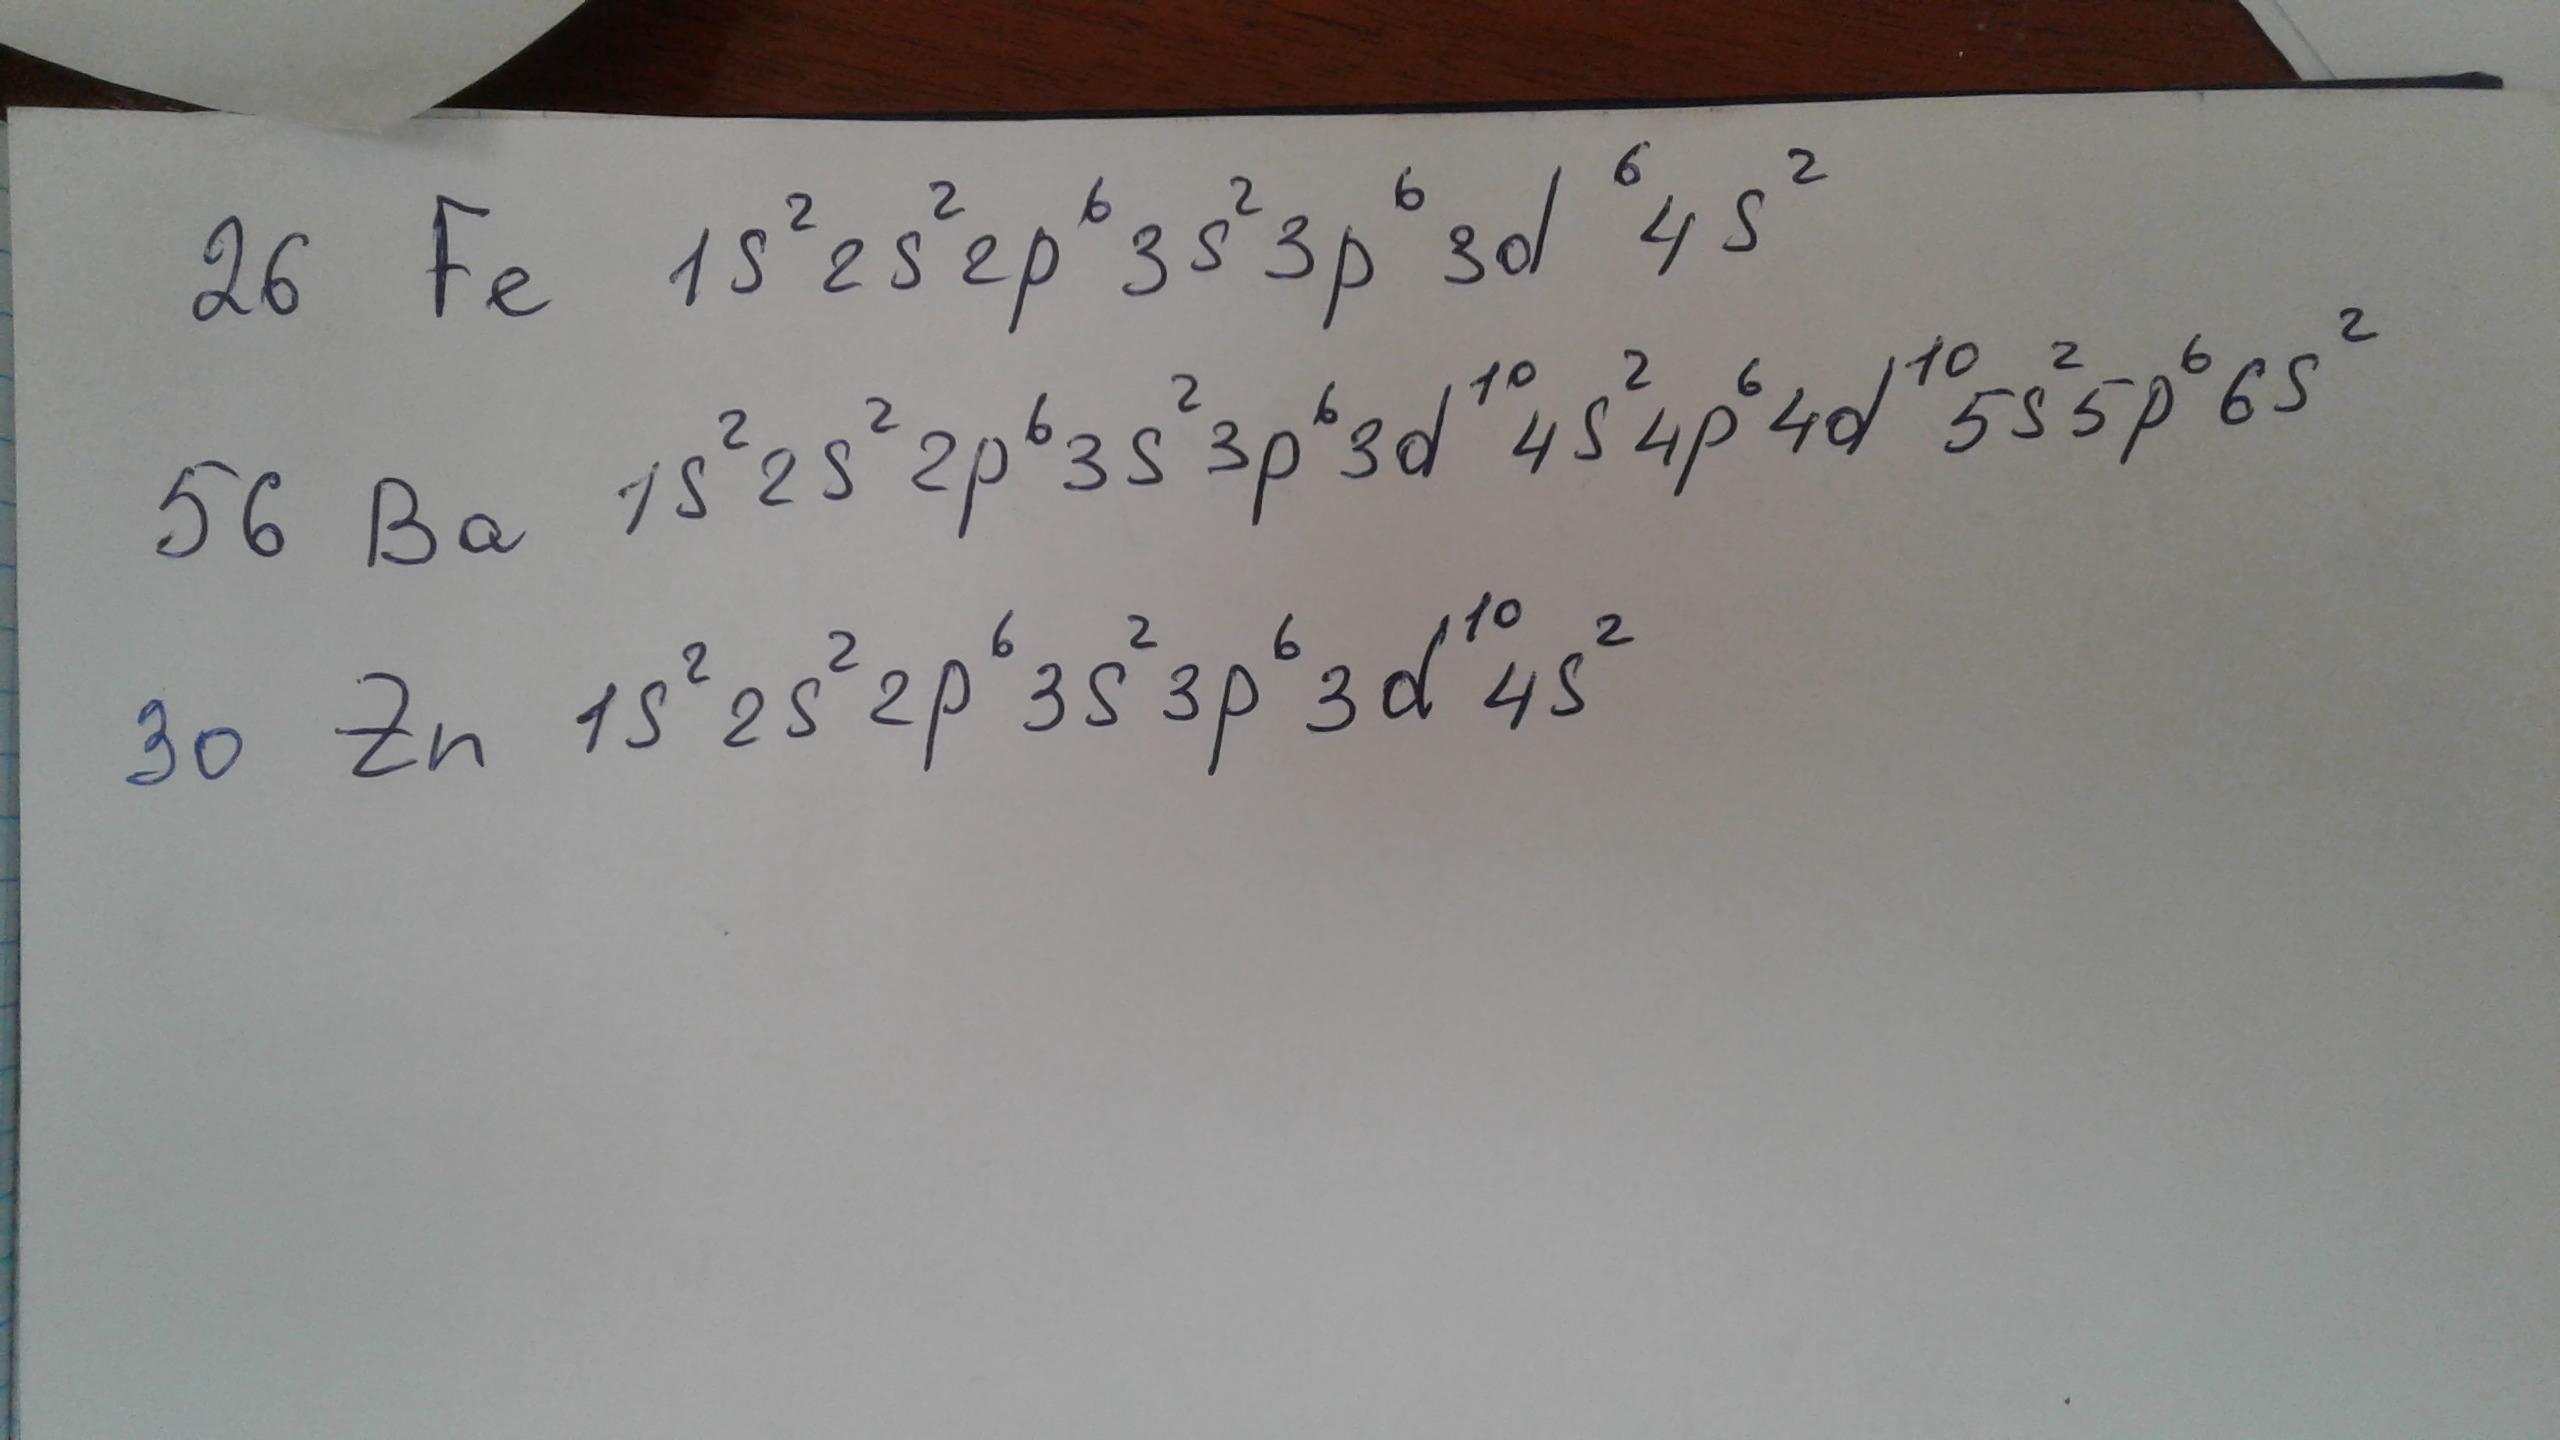 26 Fe 1s²2s²2p⁶3s²3p⁶3d⁶4s²
56 Ba 1s²2s²2p⁶3s²3p⁶3d¹⁰4s²4p⁶4d¹⁰5s²5p⁶6s²
30 Zn 1s²2s²2p⁶3s²3p⁶3d¹⁰4s²